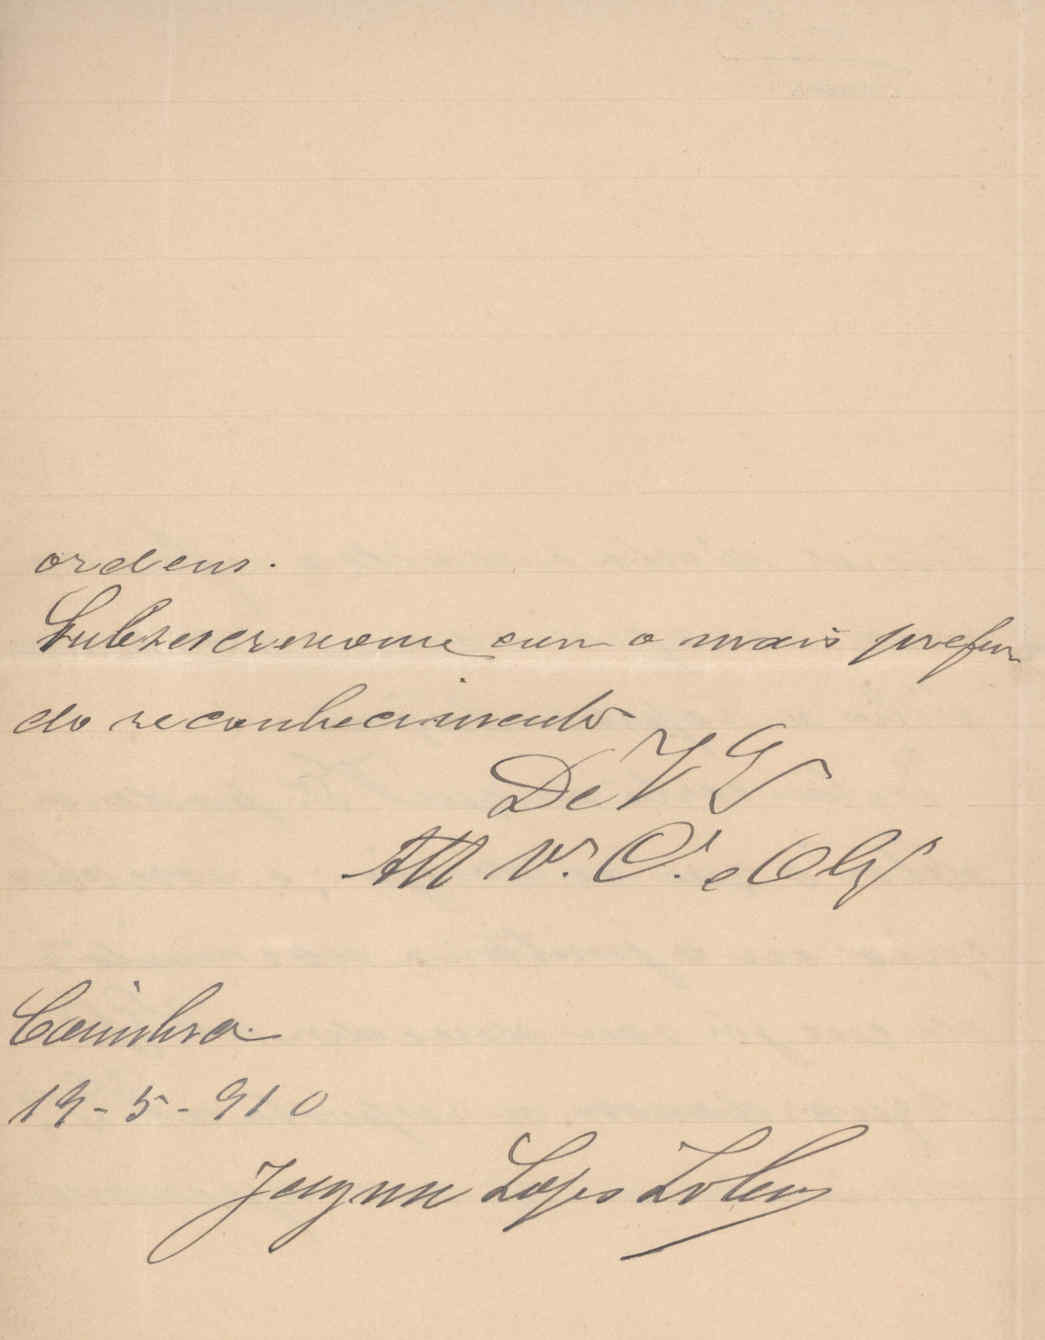 ordens.
Subsescrevome com o mais profun
do reconhecimento
De V Ex
Att V.ᵒʳ C.ᵒ e Obg
Coimbra
19-5-910
Joaquim Lopes